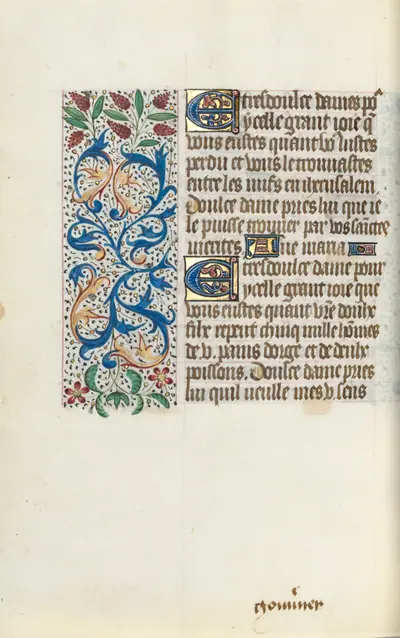 Et tresdoulce dame po^r
ycelle grant ioie q̃
vous eustes quant vo^s leustes
perdu et vous le trouuastes
entre les iuifs en iherusalem.
Doulce dame pries lui que ie
le puisse trouuer par vos saĩctz
merites Aue maria
Et tresdoulce dame pour
icelle grant ioie que
vous eustes quant vr̃e doulx
filz reput chinq mille hõmes
de v. pains dorge et de deulx
poissons. Doulce dame pries
lui quil veille mes v. sens
gouuner